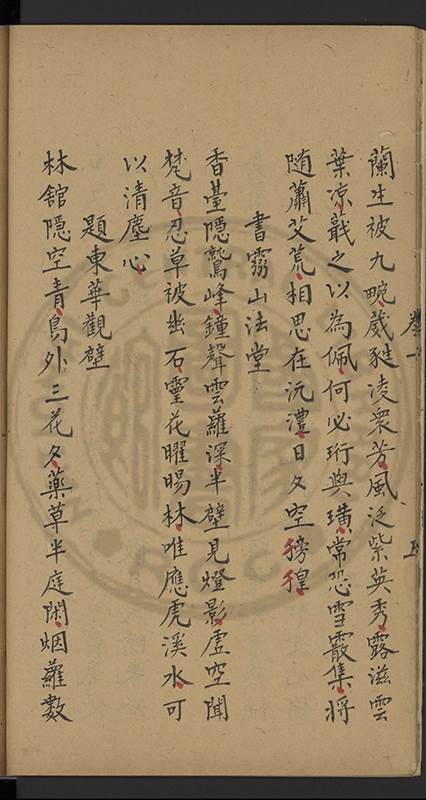 蘭生被九畹葳蕤凌衆芳風泛紫英秀露滋雲
葉凉蕺之以為佩何必珩與璜常恐雪霰集将
随蕭艾荒相思在沅澧日夕空徬徨
書霧山法堂
香臺隱鷲峰鐘聲雲蘿深半壁見燈影虛空聞
梵音忍草被幽石靈花曜暘林唯應虎溪水可
以清塵心
題東華觀壁
林舘隱空青鳥外三花夕藥草半庭閑烟蘿數